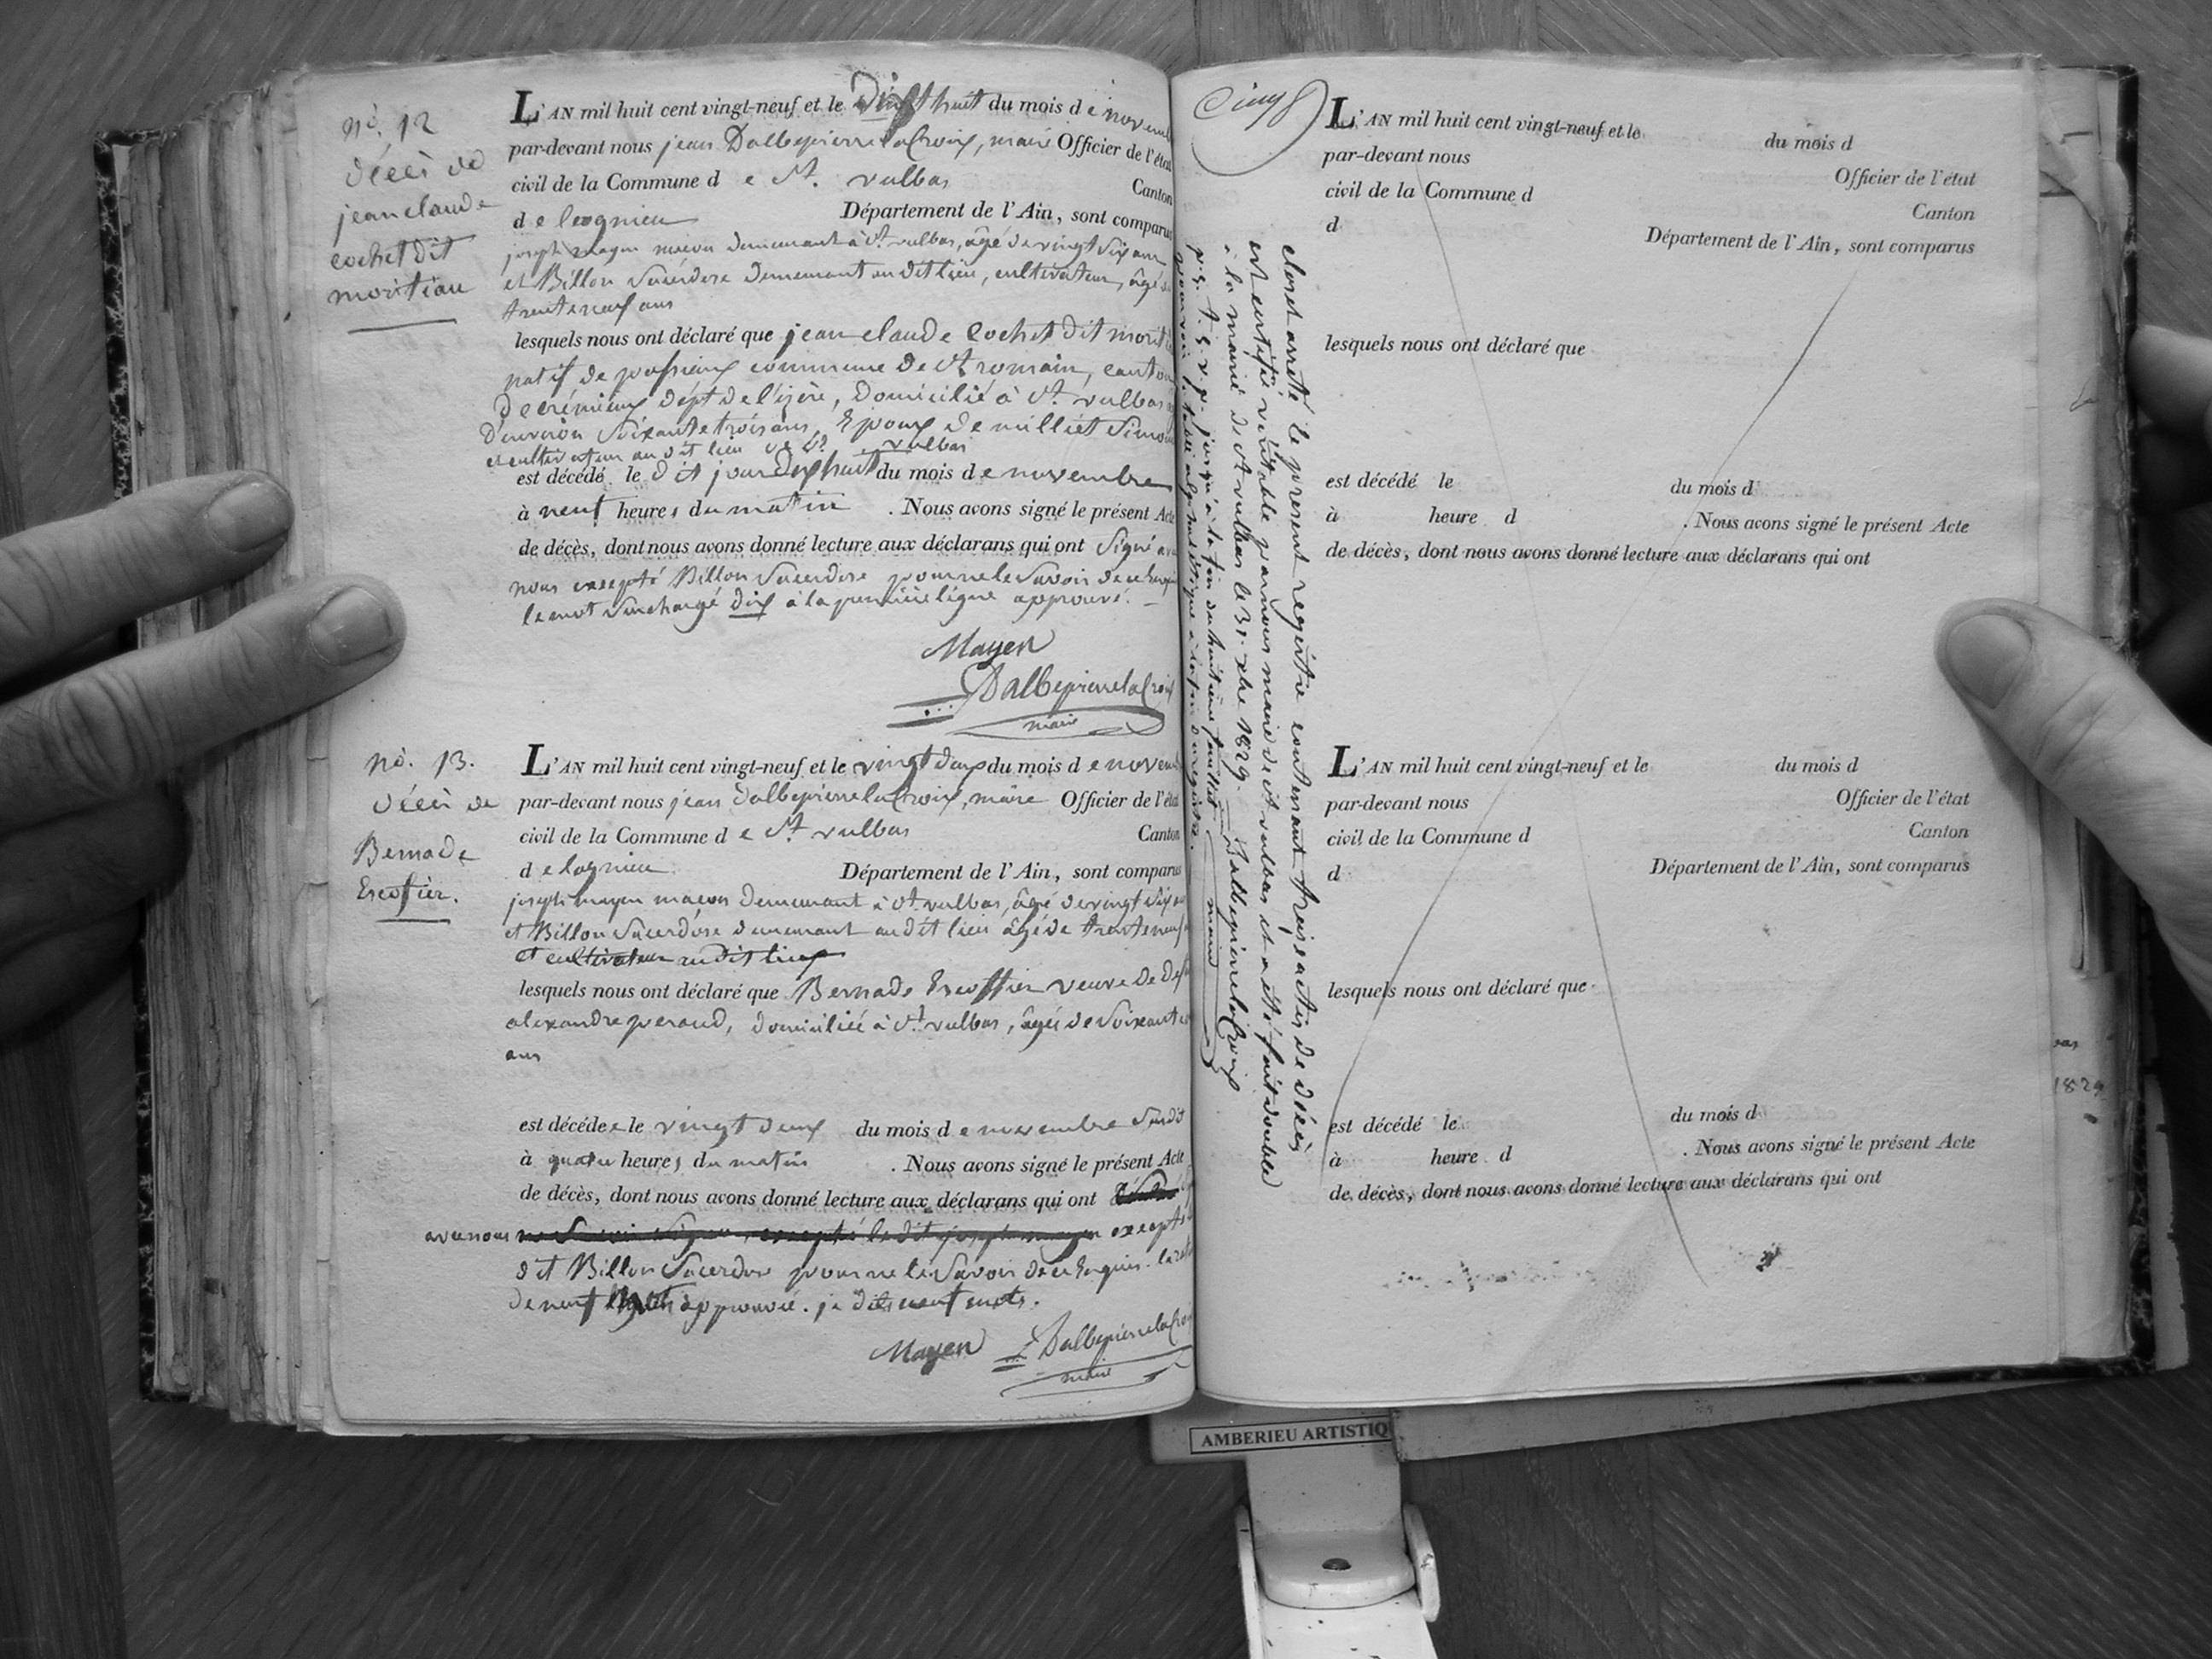 nò. 12
décès de
jean claude
cochet dit
moritiau
L'AN mil huit cent vingt-neuf et le dix huit du mois de novem
par-devant nous jean Dalbepierre lacroix, maire Officier de l'état
civil de la Commune de St. vulbas Canton
de lagnieu Département de l'Ain, sont comparus
joseph mayen macon demeurant à St. vulbas, âgé de vingt six ans
et Billon Sacerdose demeurant au dit lieu, cultivateur, âgé de
trente neuf ans
lesquels nous ont déclaré que jean claude Cochet dit morit
natif de possieux commune de St romain, canton
de crémieux dépt de l'izère, domicilié à St. vulbas
d'environ soixante trois ans, Epoux de milliet Simo
et cultivateur au dit lieu de St. vulbas
est décédé le dit jour dix huit du mois de novembre
à neuf heures du matin . Nous avons signé le présent Acte
de décès, dont nous avons donné lecture aux déclarans qui ont signé av
nous excepté Billon Sacerdose pour ne le savoir de ce Enquis
le mot surchargé dix à la première ligne approuvé.
Mayen
Dalbepierre lacroix
maire
nò. 13.
décès de
Bernade
Escofier.
L'AN mil huit cent vingt-neuf et le vingt deux du mois de novem
par-devant nous jean Dalbepierre lacroix, maire Officier de l'état
civil de la Commune de St vulbas Canton
de lagnieu Département de l'Ain, sont comparus
joseph mayen macon demeurant à St. vulbas, âgé de vingt six an
et Billon Sacerdose demeurant au dit lieu âgé de trente neuf
et cultivateur au dit lieu
lesquels nous ont déclaré que Bernade Escoffier veuve de def
alexandre peraud, domiciliée à St vulbas, âgée de soixante
ans
est décédée le vingt deux du mois de novembre susdit
à quatre heures du matin . Nous avons signé le présent Acte
de décès, dont nous avons donné lecture aux déclarans qui ont
avec nous ne savoir signer excepté le dit joseph mayen excepté
dit Billon Sacerdose pour ne le savoir de ce Enquis.
de neuf approuvé. je dits neuf mots.
Mayen Dalbepierre lacroix
maire
closet arreté le present registre contenant treize actes de décès
est certifié véritable par nous maire de St vulbas et a été fait double
à la mairie de St vulbas le 31. xbre 1829. Dalbepierre lacroix
p. s. t. s. v. p. jusqu'à la fin du huitième feuillet maire
pour voir la table alphabétique à la fin du registre.
L'AN mil huit cent vingt-neuf et le du mois d
par-devant nous Officier de l'état
civil de la Commune d Canton
d Département de l'Ain, sont comparus
lesquels nous ont déclaré que
est décédé le du mois d
à heure d . Nous avons signé le présent Acte
de décès, dont nous avons donné lecture aux déclarans qui ont
L'AN mil huit cent vingt-neuf et le du mois d
par-devant nous Officier de l'état
civil de la Commune d Canton
d Département de l'Ain, sont comparus
lesquels nous ont déclaré que
est décédé le du mois d
à heure d . Nous avons signé le présent Acte
de décès, dont nous avons donné lecture aux déclarans qui ont
1829
AMBERIEU ARTISTIQ